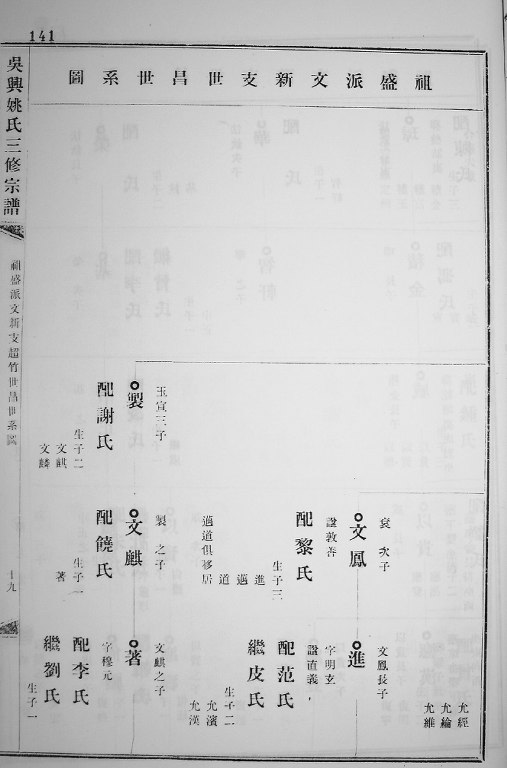 141
祖盛派文新支世昌世系圖
允經
允綸
允維
文鳳長子
進
字明玄
諡直義
配范氏
繼皮氏
生子二
允濱
允漢
袞次子
文鳳
諡敦善
配黎氏
生子三
進
邁
道
邁道俱移居
玉宣三子
製
配謝氏
生子二
文麒
文麟
製之子
文麒
配饒氏
生子一
著
文麒之子
著
字穆元
配李氏
繼劉氏
生子一
吳興姚氏三修宗譜
祖盛派文新支超竹世昌世系圖
十九